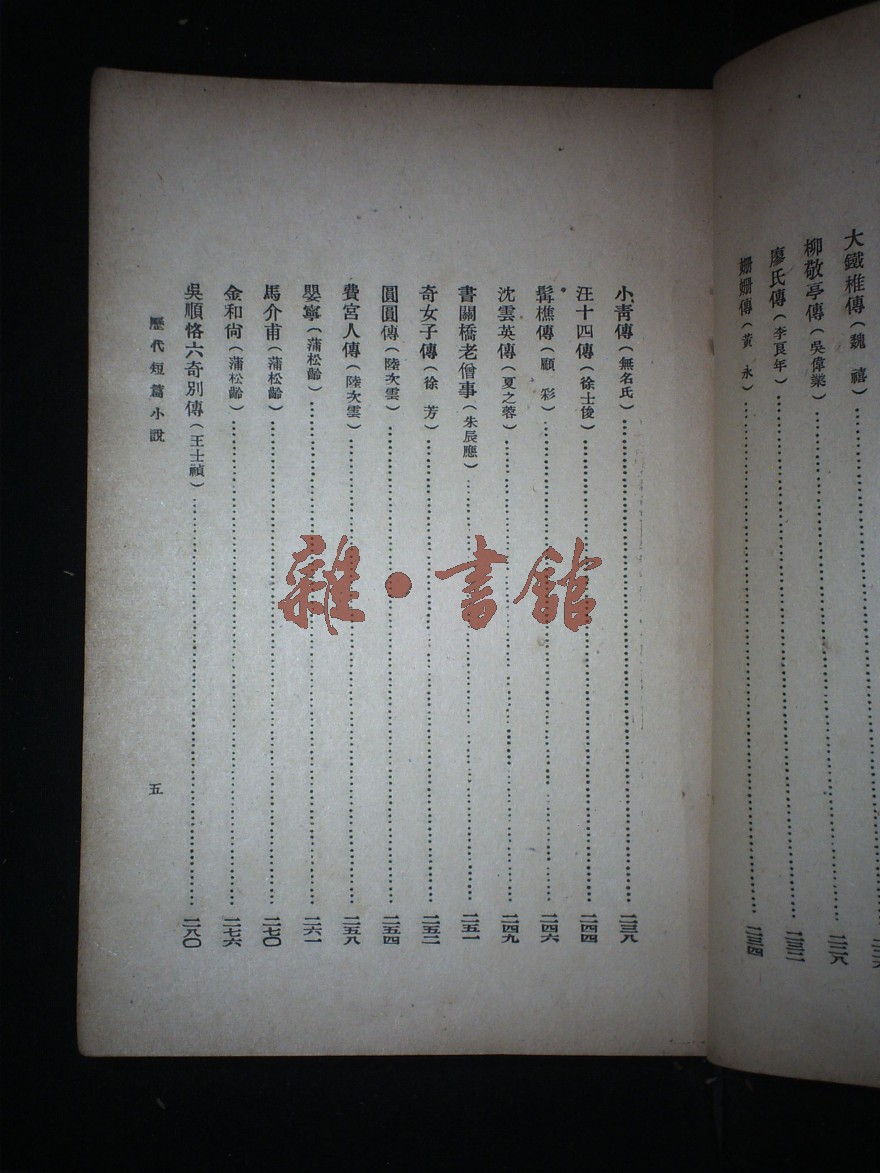 大鐵椎傳(魏 禧)
柳敬亭傳(吳偉業)……二二八
廖氏傳(李良年)……二三二
姍姍傳(黃 永)……二三四
小青傳(無名氏)……二三八
汪十四傳(徐士俊)……二四四
髯樵傳(顧 彩)……二四六
沈雲英傳(夏之蓉)……二四九
書關橋老僧事(朱辰應)……二五一
奇女子傳(徐 芳)……二五二
圓圓傳(陸次雲)……二五四
費宮人傳(陸次雲)……二五八
嬰寧(蒲松齡)……二六一
馬介甫(蒲松齡)……二七〇
金和尙(蒲松齡)……二七六
吳順恪六奇別傳(王士禎)……二八〇
歷代短篇小說
五
雜·書館